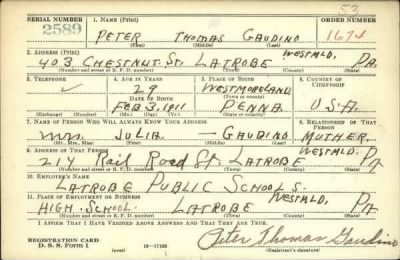 53
SERIAL NUMBER 1. NAME (Print) ORDER NUMBER
2589 PETER THOMAS GAUDINO 1674
(First) (Middle) (Last)
2. ADDRESS (Print)
403 CHESTNUT ST. LATROBE WESTMLD. PA.
(Number and street or R. F. D. number) (Town) (County) (State)
3. TELEPHONE 4. AGE IN YEARS 5. PLACE OF BIRTH 6. COUNTRY OF CITIZENSHIP
✓ 29 WESTMORELAND
DATE OF BIRTH (Town or county)
FEB. 3, 1911 PENNA U.S.A
(Exchange) (Number) (Mo.) (Day) (Yr.) (State or country)
7. NAME OF PERSON WHO WILL ALWAYS KNOW YOUR ADDRESS 8. RELATIONSHIP OF THAT PERSON
MRS. JULIA — GAUDINO MOTHER
(Mr., Mrs., Miss) (First) (Middle) (Last)
9. ADDRESS OF THAT PERSON
214 Rail Road St. LATROBE WESTMLD. PA
(Number and street or R. F. D. number) (Town) (County) (State)
10. EMPLOYER'S NAME
LATROBE PUBLIC SCHOOLS.
11. PLACE OF EMPLOYMENT OR BUSINESS
HIGH SCHOOL LATROBE WESTMLD. PA.
(Number and street or R. F. D. number) (Town) (County) (State)
I AFFIRM THAT I HAVE VERIFIED ABOVE ANSWERS AND THAT THEY ARE TRUE.
REGISTRATION CARD
D. S. S. Form 1 (over) 16—17105 Peter Thomas Gaudino
(Registrant's signature)